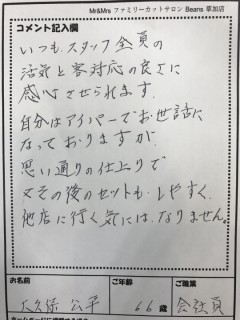 Mr&Mrs ファミリーカットサロン Beans 草加店
コメント記入欄
いつも、スタッフ全員の
活気と客対応の良さに
感心させられます。
自分はアイパーでお世話に
なっておりますが
思い通りの仕上りで
又その後のセットも、しやすく、
他店に行く気には、なりません。
お名前
ご年齢
ご職業
大久保 公平
66歳
会社員